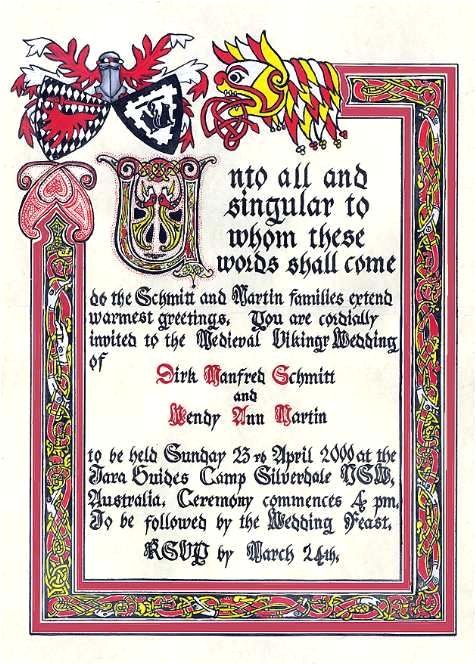 Unto all and
singular to
whom these
words shall come
do the Schmitt and Martin families extend
warmest greetings. You are cordially
invited to the Medieval Viking Wedding
of
Dirk Manfred Schmitt
and
Wendy Ann Martin
to be held Sunday 23rd April 2000 at the
Tara Guides Camp Silverdale NSW,
Australia. Ceremony commences 4 pm.
To be followed by the Wedding Feast.
RSVP by March 24th.